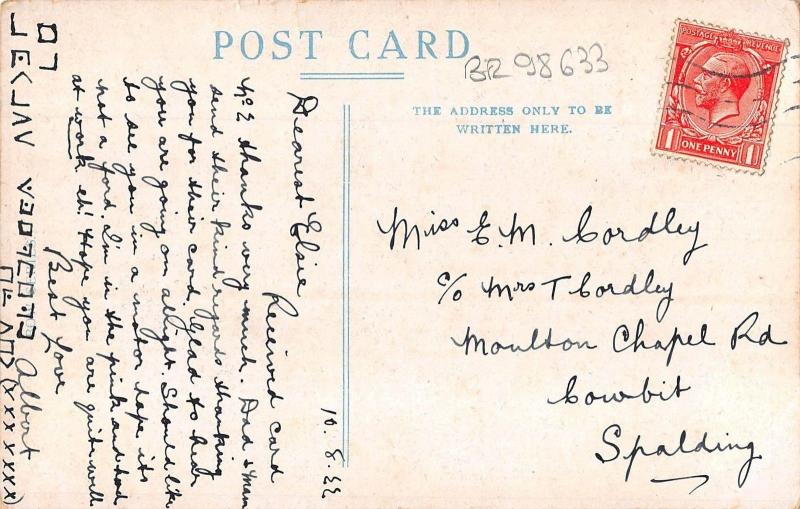 POST CARD
BR 98633
THE ADDRESS ONLY TO BE
WRITTEN HERE.
POSTAGE REVENUE
1 ONE PENNY 1
Miss E. M. Cordley
c/o Mrs T Cordley
Moulton Chapel Rd
Cowbit
Spalding
10. 8. 22
Dearest Elsie
Received card
No 2 thanks very much. Dad & Mam
send their kind regards thanking
you for their card. Glad to hear
you are going on allright. Should like
to see you in a motor hope its
not a ford. I'm in the pink and had
at work eh! Hope you are quite well
Best love
Albert
(XXXXXX)